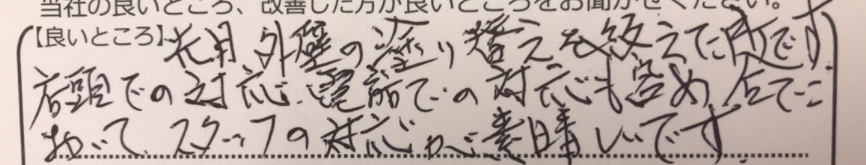 当社の良いところ、改善した方が良いところをお聞かせください。
【良いところ】先月外壁の塗り替えを終えた所です
店頭での対応、電話での対応も含め全てに
おいてスタッフの対応が素晴しいです